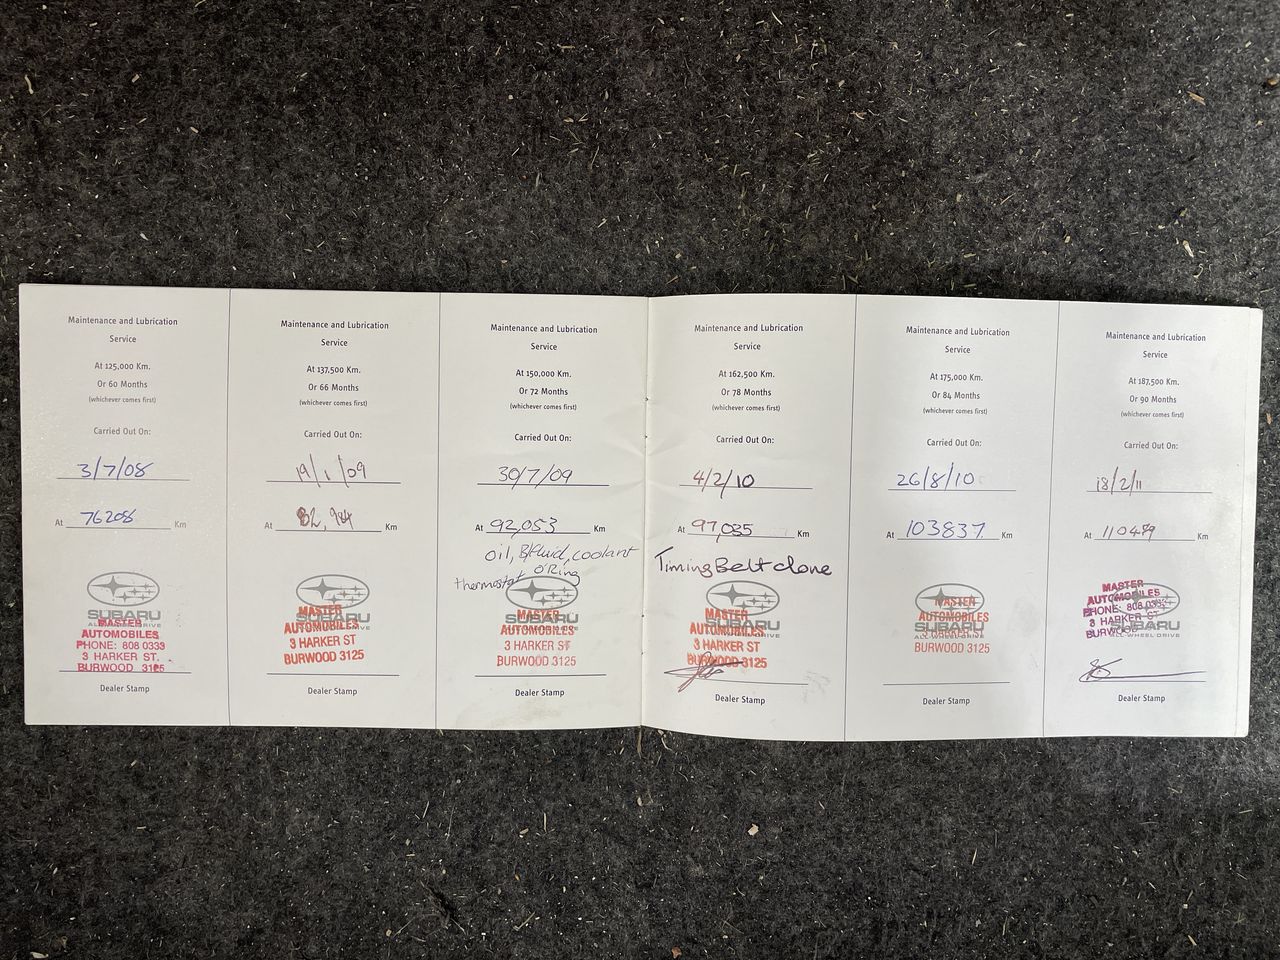 Maintenance and Lubrication
Service
At 125,000 Km.
Or 60 Months
(whichever comes first)
Carried Out On:
3/7/08
At 76208 Km
SUBARU
ALL-WHEEL DRIVE
MASTER
AUTOMOBILES
PHONE: 808 0333
3 HARKER ST.
BURWOOD 3125
Dealer Stamp
Maintenance and Lubrication
Service
At 137,500 Km.
Or 66 Months
(whichever comes first)
Carried Out On:
19/1/09
At 82,984 Km
SUBARU
ALL-WHEEL DRIVE
MASTER
AUTOMOBILES
3 HARKER ST
BURWOOD 3125
Dealer Stamp
Maintenance and Lubrication
Service
At 150,000 Km.
Or 72 Months
(whichever comes first)
Carried Out On:
30/7/09
At 92,053 Km
oil, B/Fluid, coolant
thermostat O'Ring
SUBARU
ALL-WHEEL DRIVE
MASTER
AUTOMOBILES
3 HARKER ST
BURWOOD 3125
Dealer Stamp
Maintenance and Lubrication
Service
At 162,500 Km.
Or 78 Months
(whichever comes first)
Carried Out On:
4/2/10
At 97,035 Km
Timing Belt done
SUBARU
ALL-WHEEL DRIVE
MASTER
AUTOMOBILES
3 HARKER ST
BURWOOD 3125
Dealer Stamp
Maintenance and Lubrication
Service
At 175,000 Km.
Or 84 Months
(whichever comes first)
Carried Out On:
26/8/10
At 103837 Km
SUBARU
ALL-WHEEL DRIVE
MASTER
AUTOMOBILES
3 HARKER ST
BURWOOD 3125
Dealer Stamp
Maintenance and Lubrication
Service
At 187,500 Km.
Or 90 Months
(whichever comes first)
Carried Out On:
18/2/11
At Km
SUBARU
ALL-WHEEL DRIVE
MASTER
AUTOMOBILES
PHONE: 808 0333
3 HARKER ST
BURWOOD
Dealer Stamp